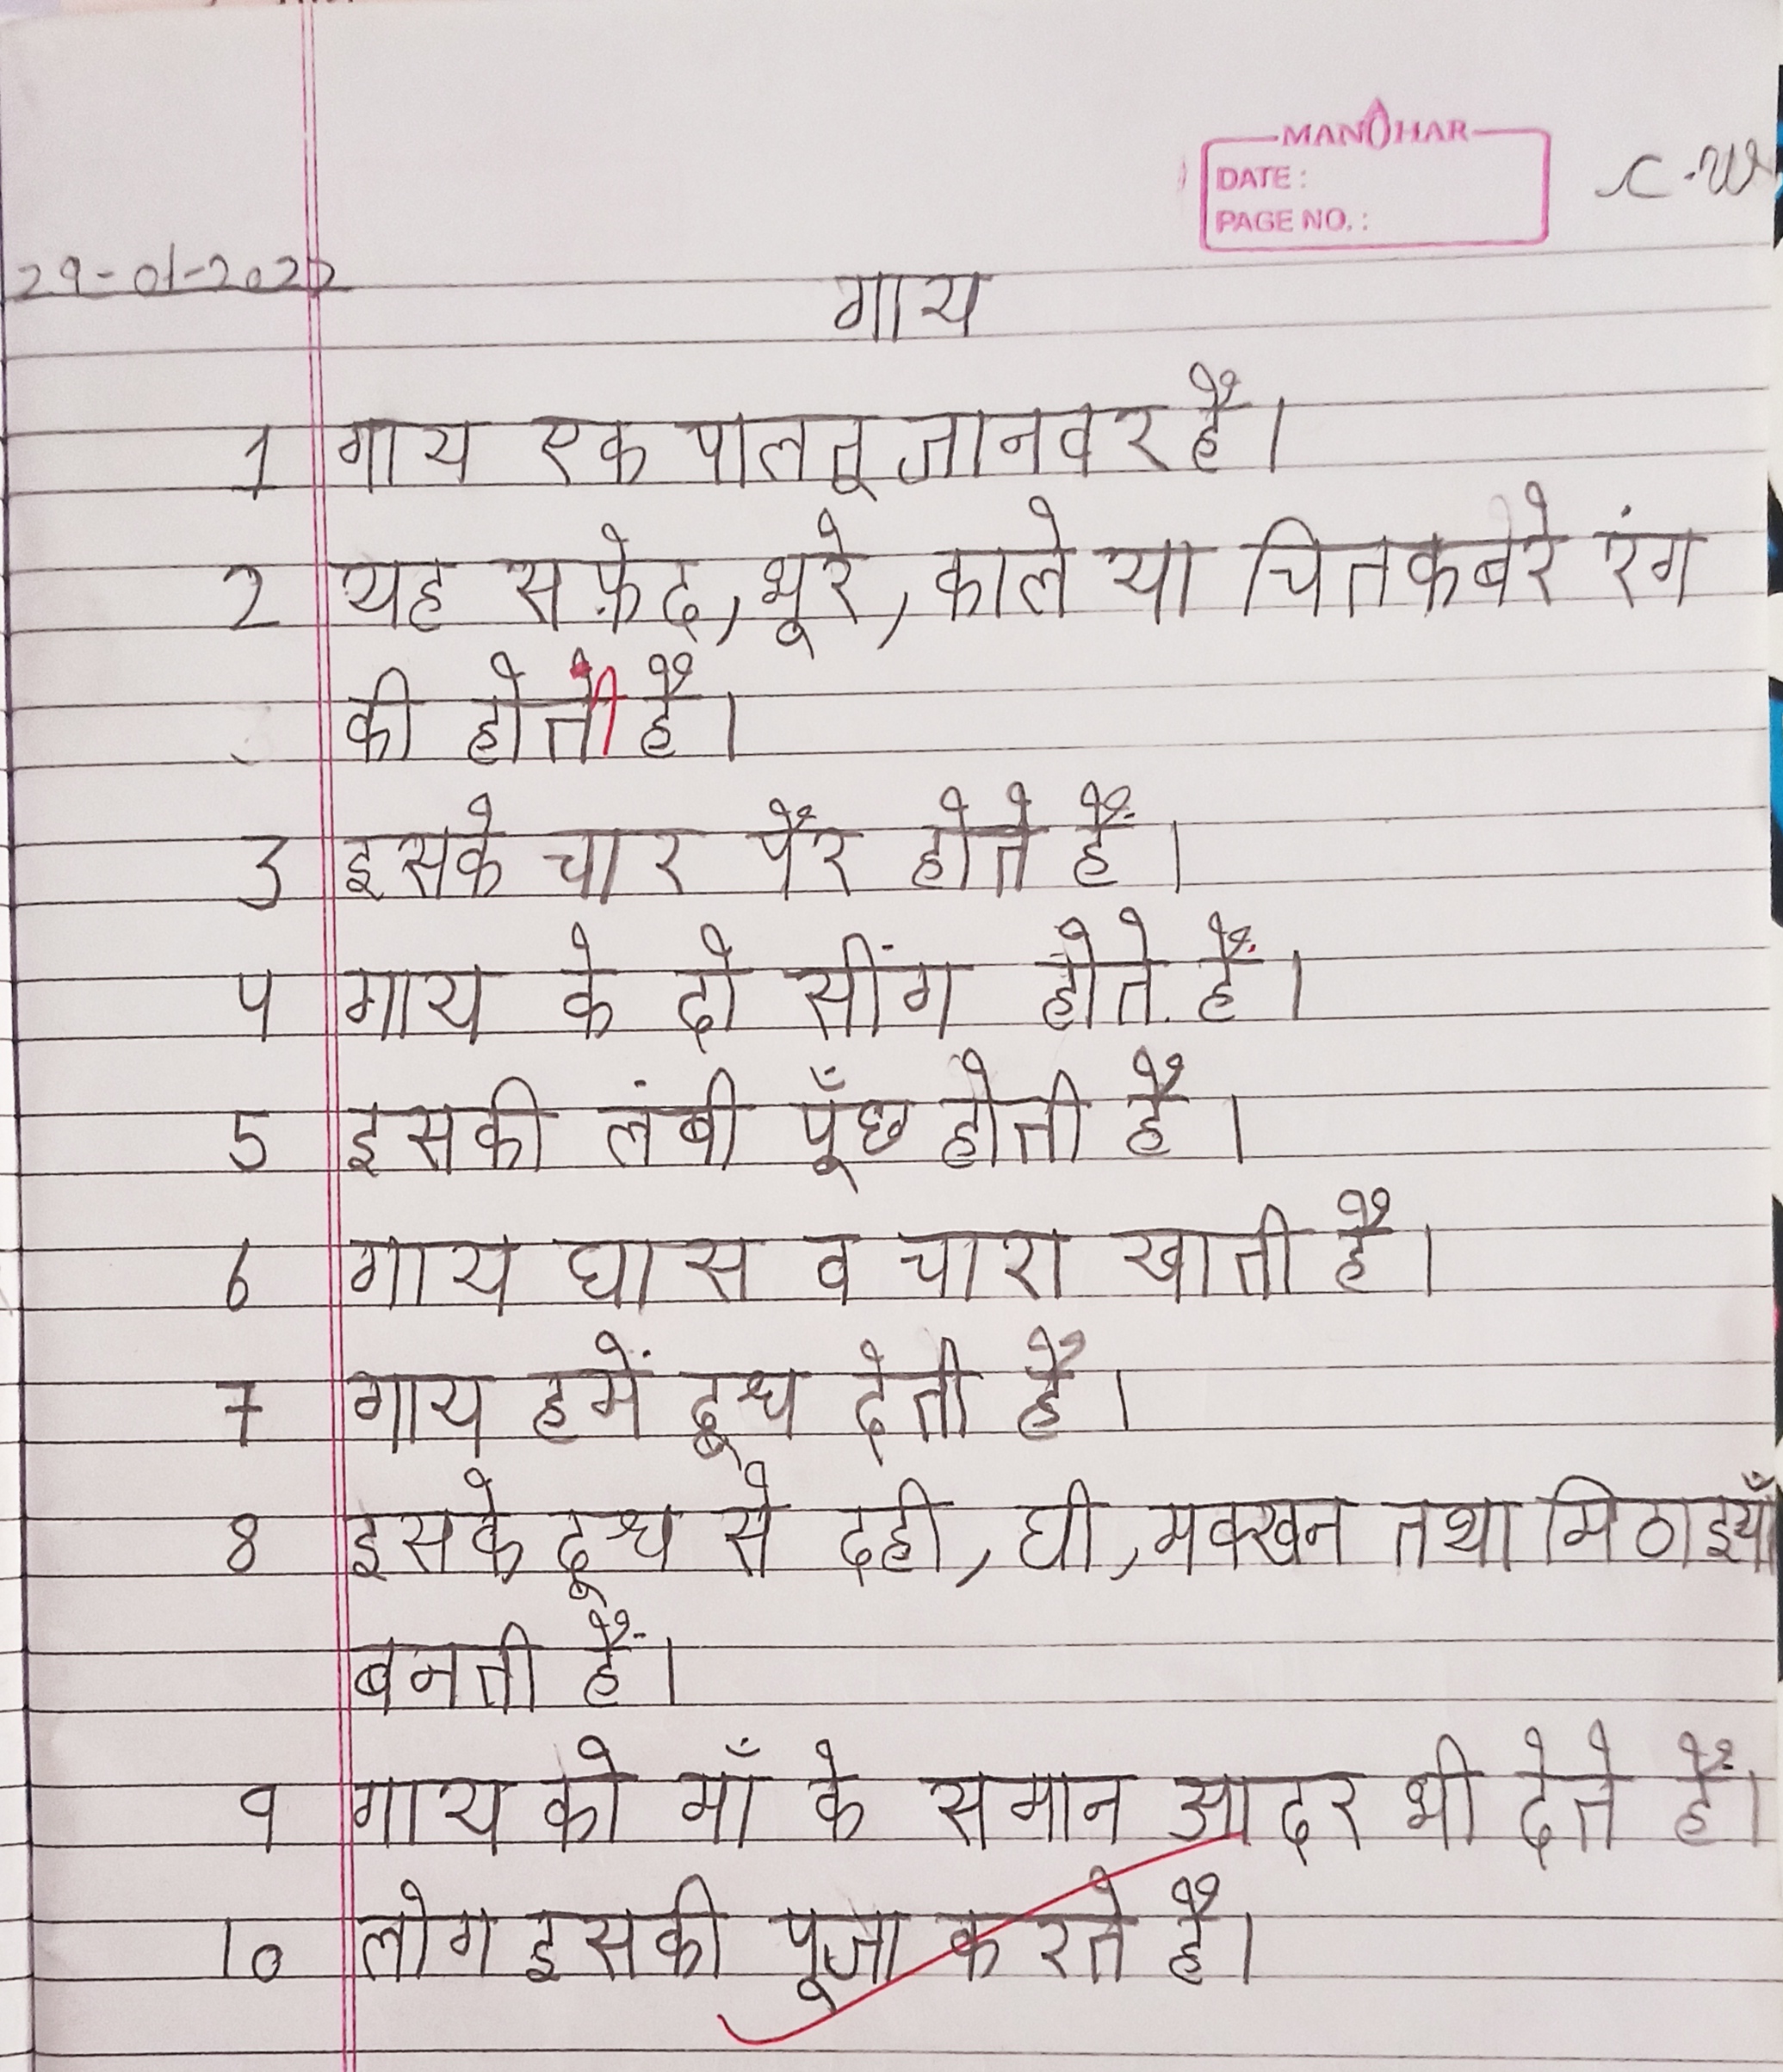 MANOHAR
DATE :
PAGE NO. :
C.W
29-01-2022
गाय
1 गाय एक पालतू जानवर है।
2 यह सफ़ेद, भूरे, काले या चितकबरे रंग
की होती है।
3 इसके चार पैर होते हैं।
4 गाय के दो सींग होते हैं।
5 इसकी लंबी पूँछ होती है।
6 गाय घास व चारा खाती है।
7 गाय हमें दूध देती है।
8 इसके दूध से दही, घी, मक्खन तथा मिठाइयाँ
बनती हैं।
9 गाय को माँ के समान आदर भी देते हैं।
10 लोग इसकी पूजा करते है।